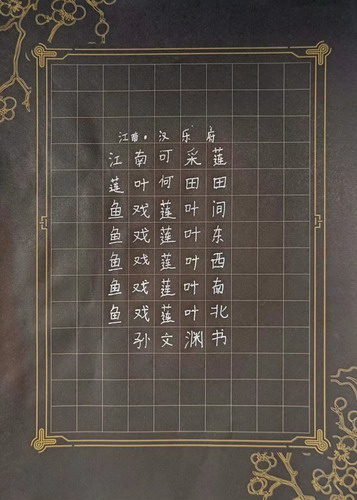 江南·汉乐府
江南可采莲
莲叶何田田
鱼戏莲叶间
鱼戏莲叶东
鱼戏莲叶西
鱼戏莲叶南
鱼戏莲叶北
孙文渊书